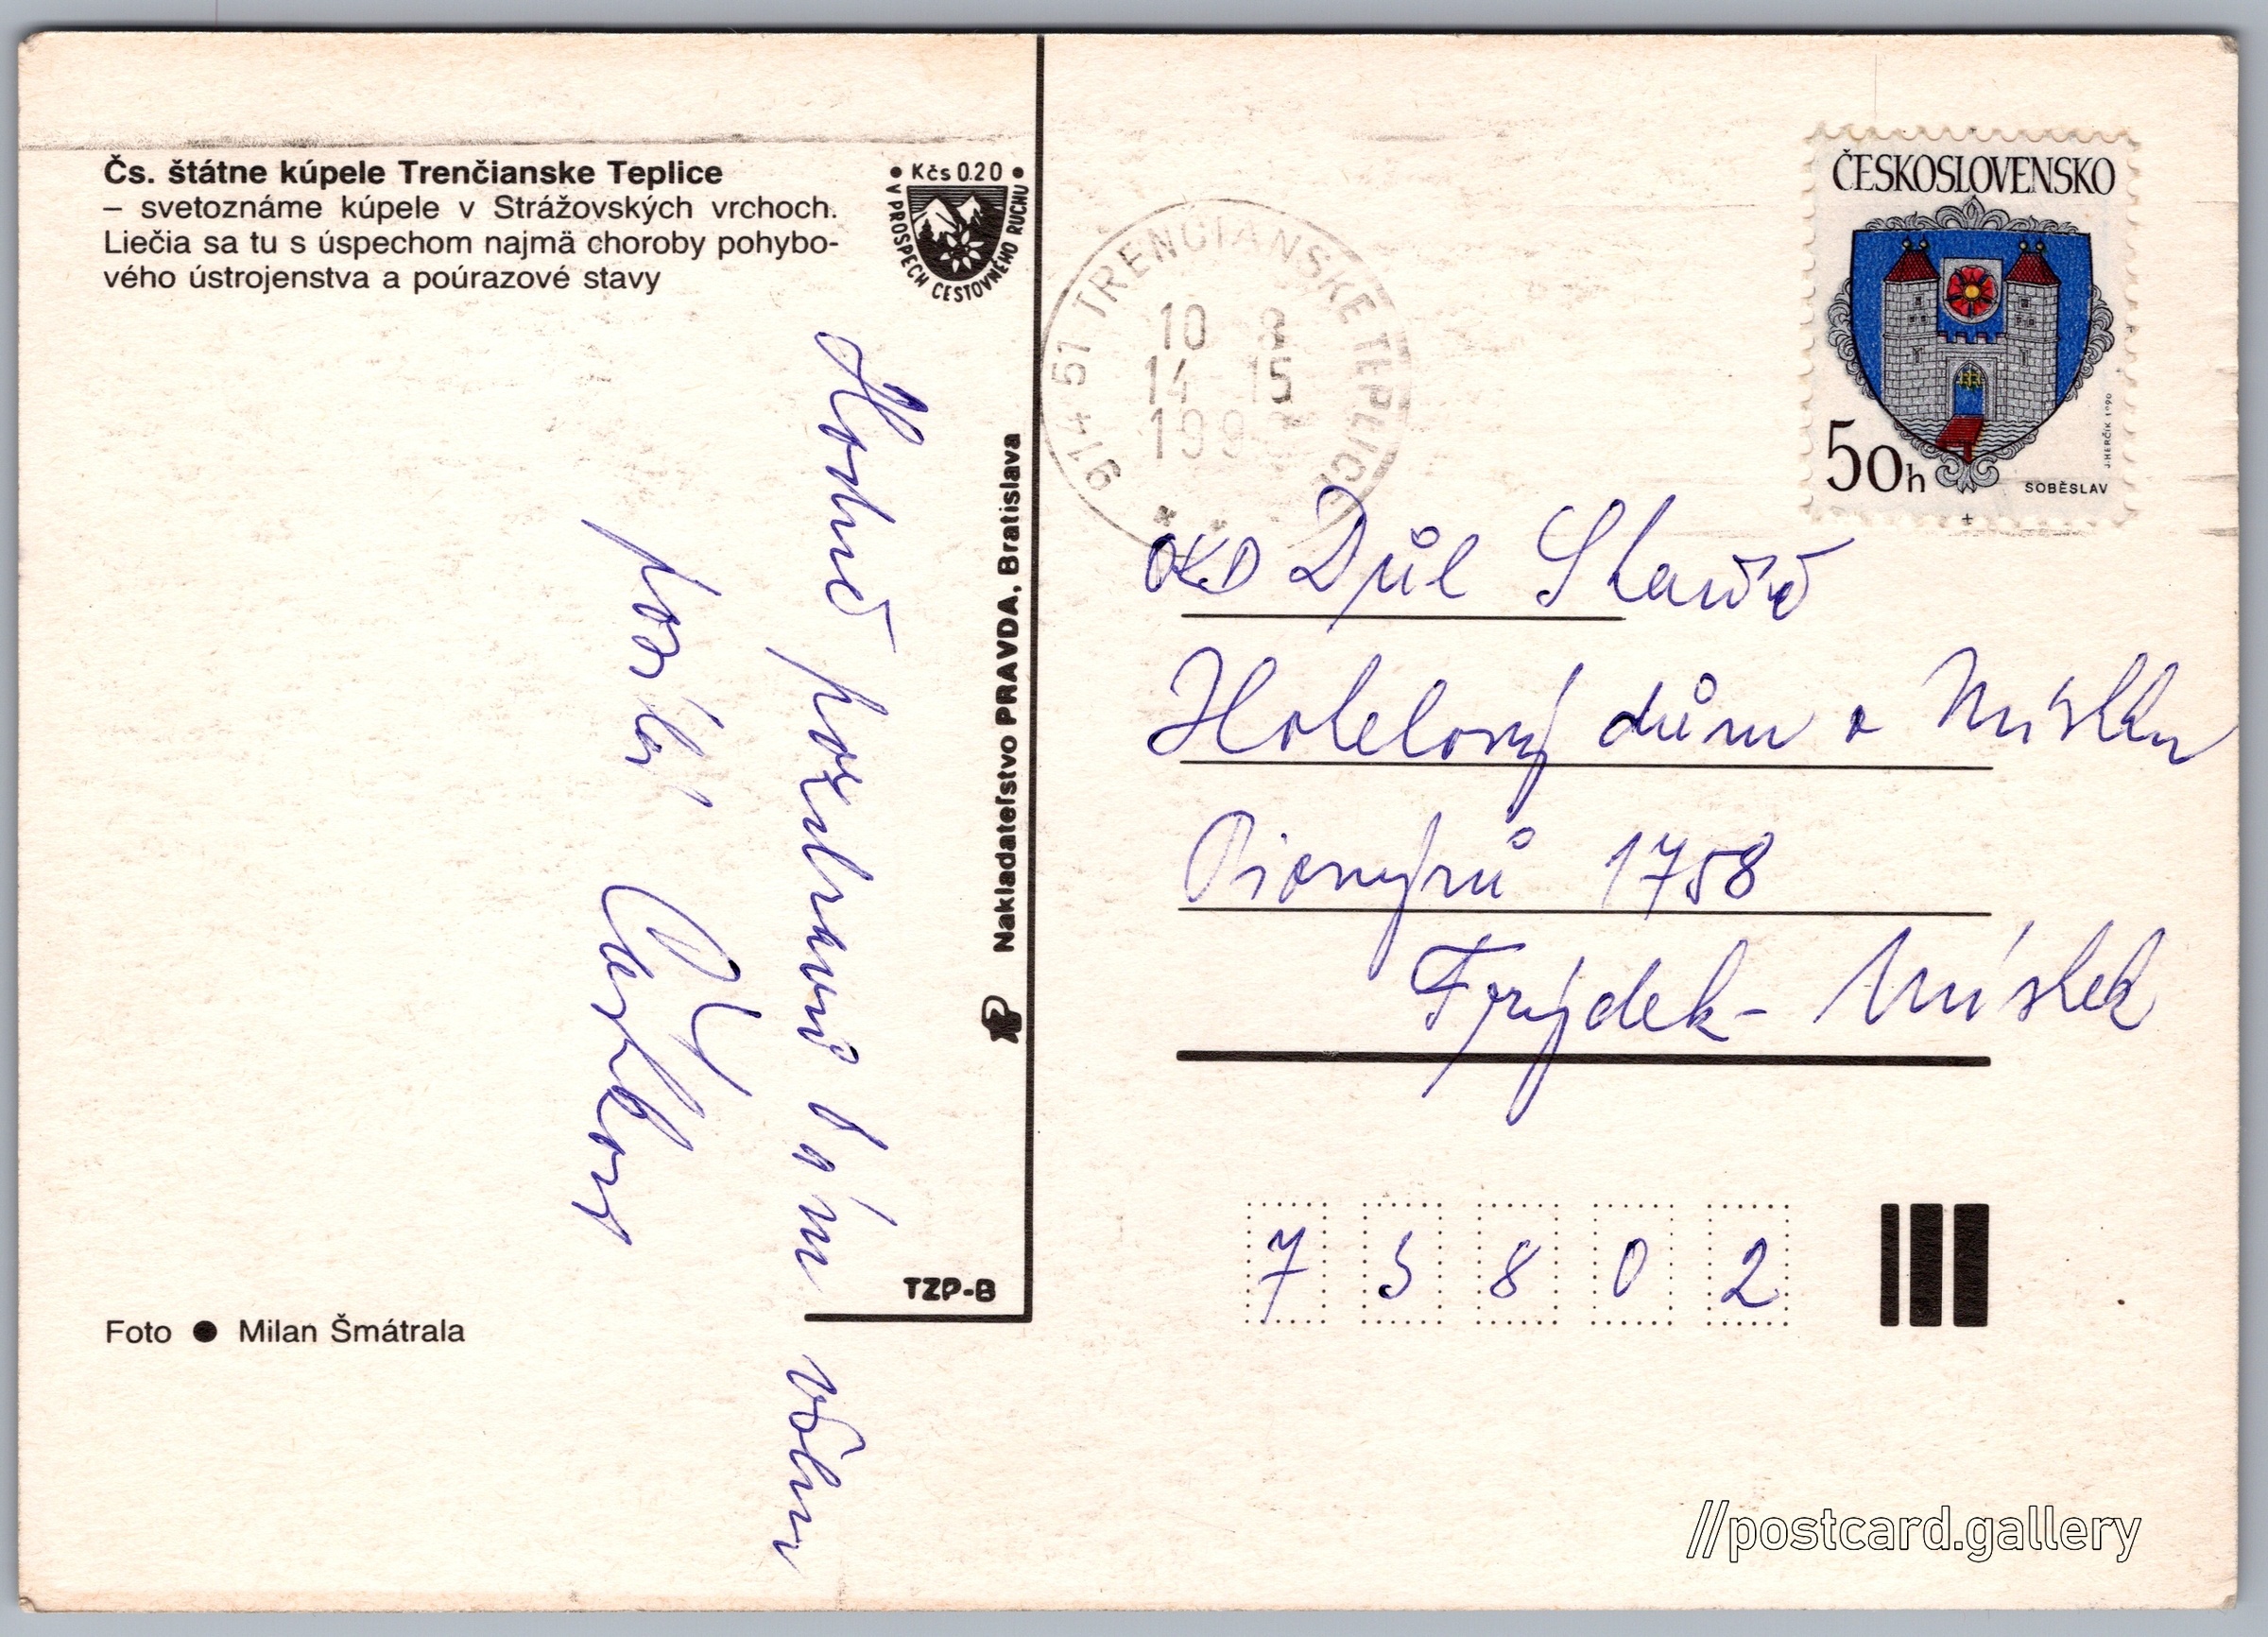 Čs. štátne kúpele Trenčianske Teplice
– svetoznáme kúpele v Strážovských vrchoch.
Liečia sa tu s úspechom najmä choroby pohybo-
vého ústrojenstva a poúrazové stavy
• Kčs 0.20 •
V PROSPECH CESTOVNÉHO RUCHU
Hodně pozdravů Vám všem
posílá
Nakladateľstvo PRAVDA, Bratislava
TZP-B
Foto ● Milan Šmátrala
914 51 TRENČIANSKE TEPLICE
10 8
14 15
199
ČESKOSLOVENSKO
50h
SOBĚSLAV
J.HERČÍK 1990
OKD Důl Staříč
Hotelový dům v Místku
Pionýrů 1758
Frýdek- Místek
7 3 8 0 2
//postcard.gallery